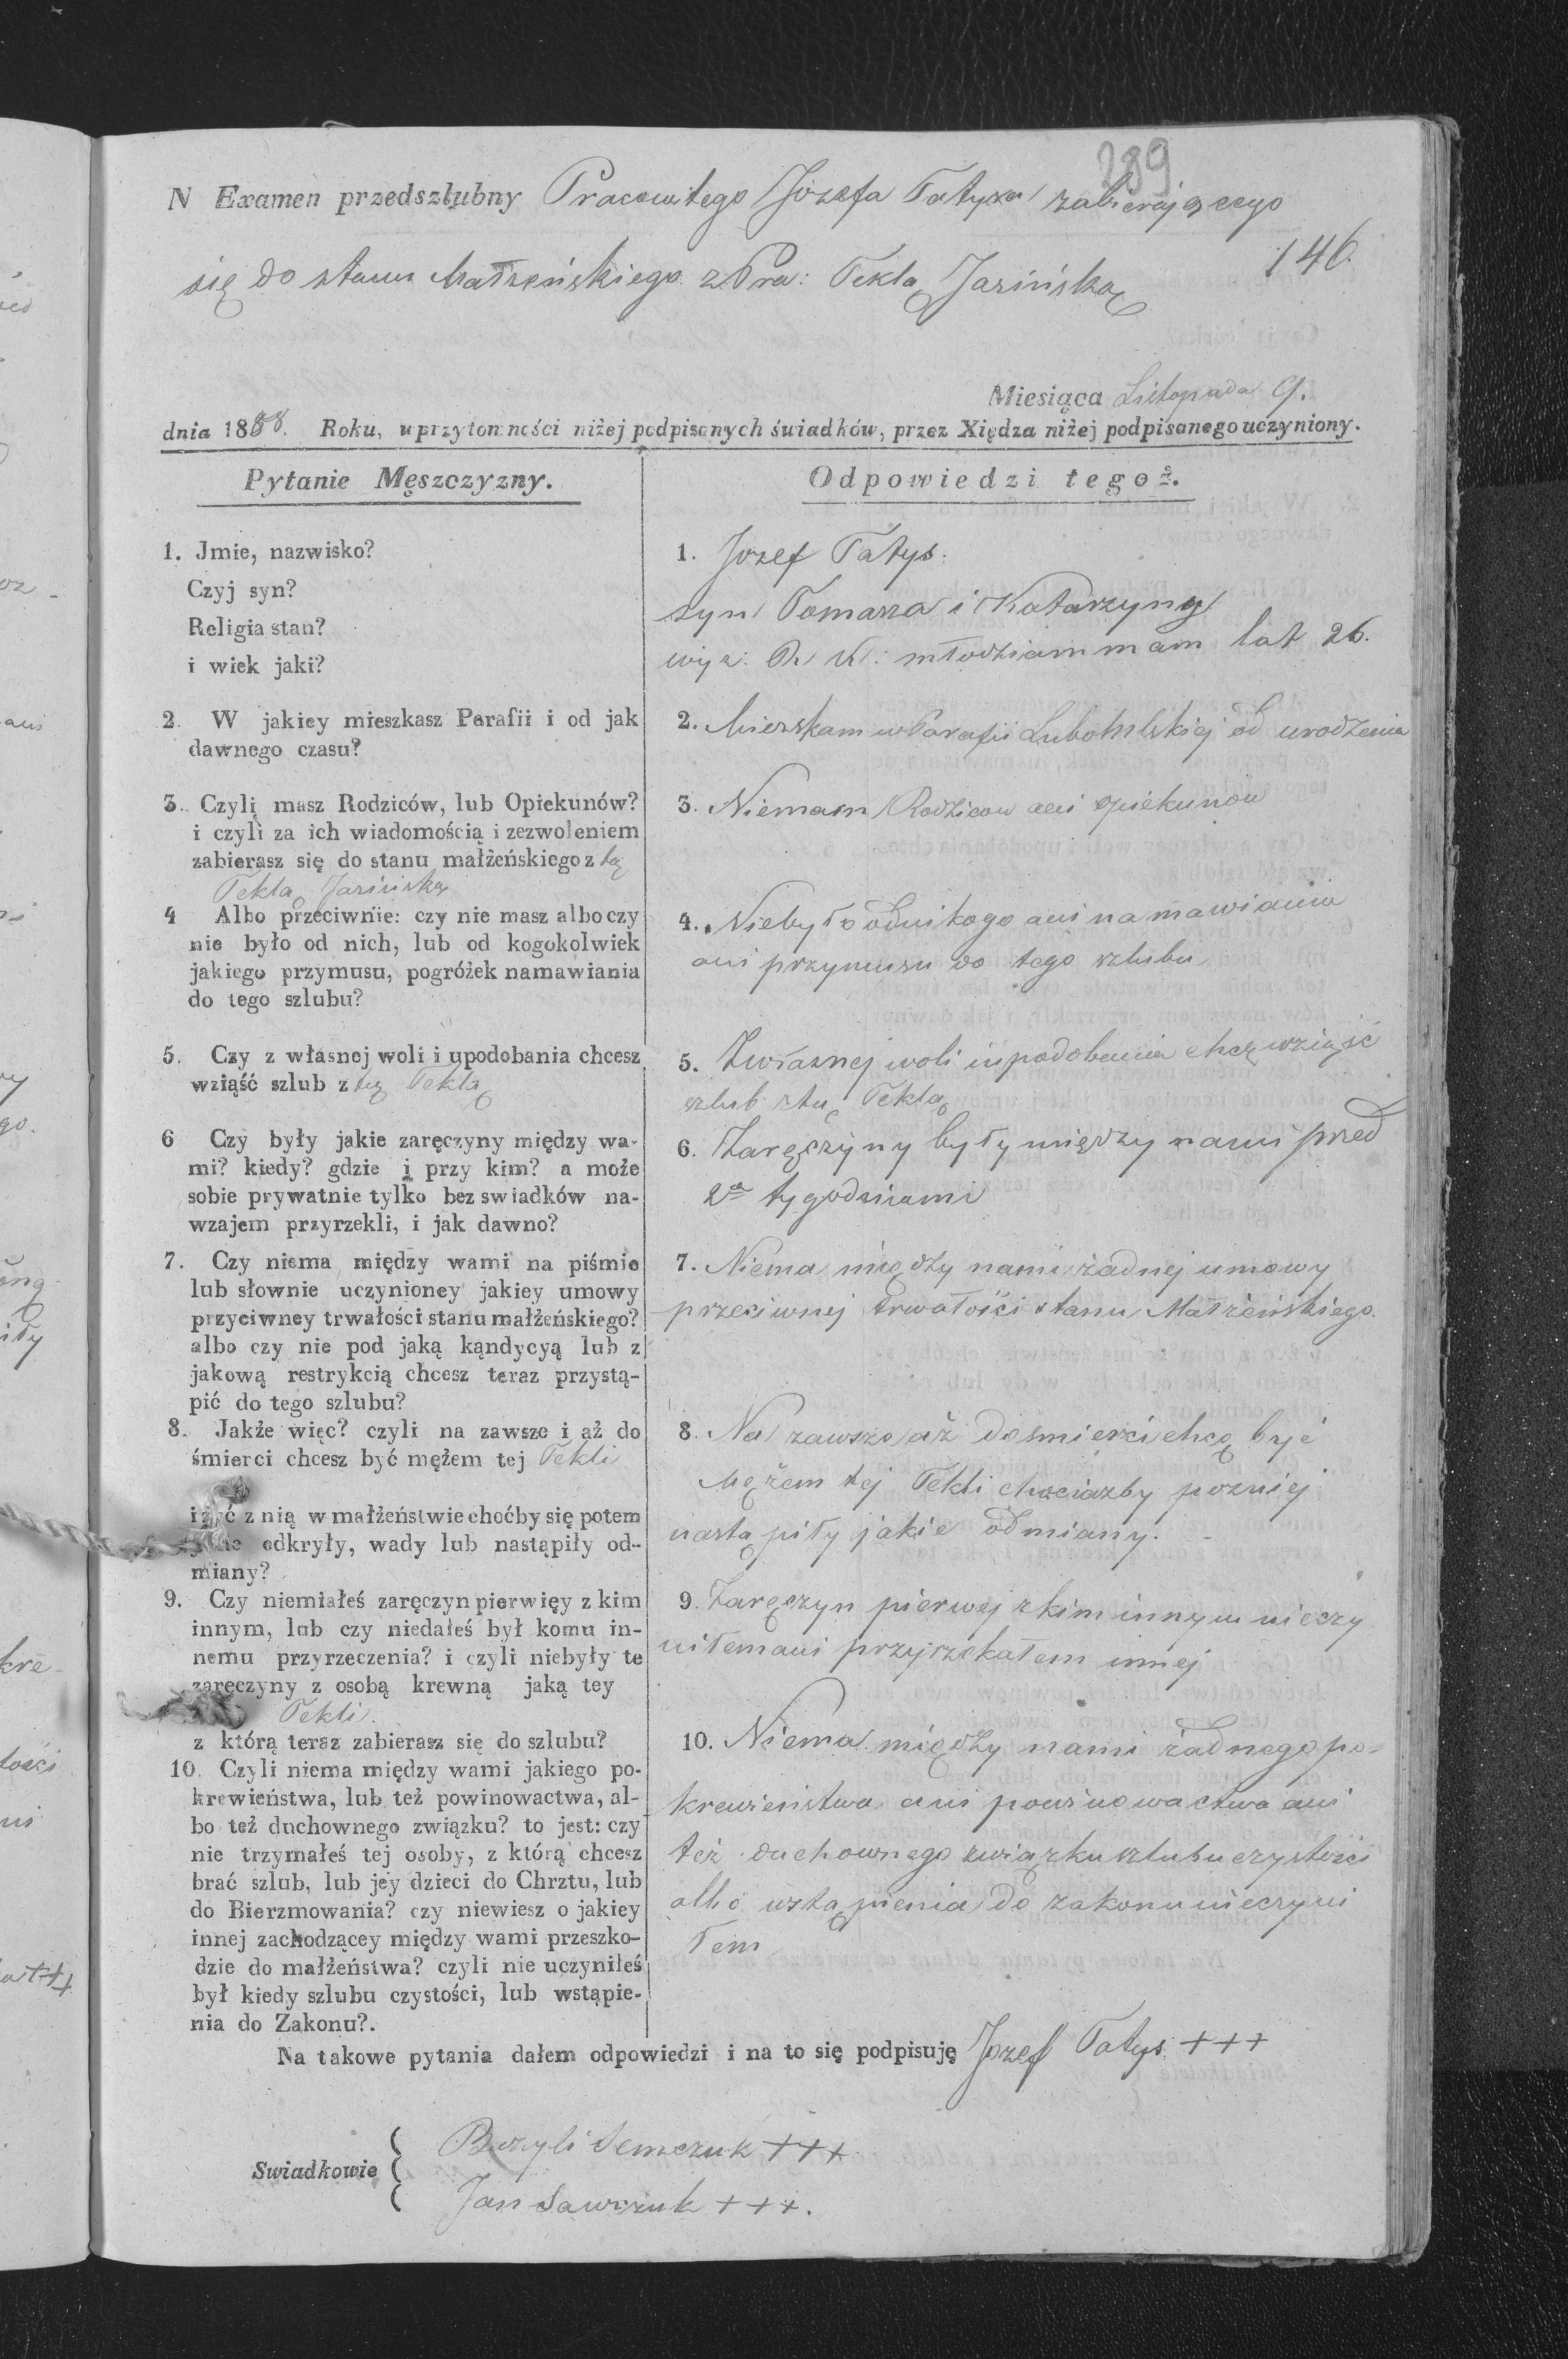 289
N Examen przedszlubny Pracowitego Józefa Tatysa zabierającego
146.
się do stanu Małżeńskiego z Pra: Teklą Jasińską
Miesiąca Listopada 9.
dnia 1888. Roku, w przytomności niżej podpisanych świadków, przez Xiędza niżej podpisanego uczyniony.
Pytanie Męszczyzny.
1. Jmie, nazwisko?
Czyj syn?
Religia stan?
i wiek jaki?
2. W jakiey mieszkasz Parafii i od jak
dawnego czasu?
3. Czyli masz Rodziców, lub Opiekunów?
i czyli za ich wiadomością i zezwoleniem
zabierasz się do stanu małżeńskiego z tą
Teklą Jasińską
4 Albo przeciwnie: czy nie masz albo czy
nie było od nich, lub od kogokolwiek
jakiego przymusu, pogróżek namawiania
do tego szlubu?
5. Czy z własnej woli i upodobania chcesz
wziąść szlub z tą Teklą
6 Czy były jakie zaręczyny między wa-
mi? kiedy? gdzie i przy kim? a może
sobie prywatnie tylko bez swiadków na-
wzajem przyrzekli, i jak dawno?
7. Czy niema między wami na piśmie
lub słownie uczynioney jakiey umowy
przyciwney trwałości stanu małżeńskiego?
albo czy nie pod jaką kąndycyą lub z
jakową restrykcią chcesz teraz przystą-
pić do tego szlubu?
8. Jakże więc? czyli na zawsze i aż do
śmierci chcesz być mężem tej Tekli
i żyć z nią w małżeństwie choćby się potem
odkryły, wady lub nastąpiły od-
miany?
9. Czy niemiałeś zaręczyn pierwięy z kim
innym, lub czy niedałeś był komu in-
nemu przyrzeczenia? i czyli niebyły te
zaręczyny z osobą krewną jaką tey
Tekli.
z którą teraz zabierasz się do szlubu?
10. Czyli niema między wami jakiego po-
krewieństwa, lub też powinowactwa, al-
bo też duchownego związku? to jest: czy
nie trzymałeś tej osoby, z którą chcesz
brać szlub, lub jey dzieci do Chrztu, lub
do Bierzmowania? czy niewiesz o jakiey
innej zachodzącey między wami przeszko-
dzie do małżeństwa? czyli nie uczyniłeś
był kiedy szlubu czystości, lub wstąpie-
nia do Zakonu?.
Odpowiedzi tegoż.
1. Jozef Tatys.
syn Tomasza i Katarzyny
wyz: R. K: młodzian mam lat 26.
2. Mieszkam w Parafii od urodzenia
3. Niemam Rodzicow ani opiekunow
4. Niebyło odnikogo ani namawiania
ani przymusu do tego szlubu
5. Zwłasnej woli iupodobania chcę wziąść
szlub ztą Teklą
6. Zaręczyny były między nami przed
2a tygodniami
7. Niema między nami żadnej umowy
przeciwnej trwałości stanu Małżeńskiego.
8. Na zawsze aż dosmierci chcę być
Mężem tej Tekli chociażby pozniej
nastąpiły jakie odmiany.
9. Zaręczyn pierwej zkim innym nieczy
niłem ani przyrzekałem innej
10. Niema między nami żadnego po-
krewieństwa ani powinowactwa ani
też duchownego związku szlubu czystości
albo wstąpienia do zakonu nieczyni
łem
Na takowe pytania dałem odpowiedzi i na to się podpisuję Jozef Tatys +++
Swiadkowie
Bazyli Semczuk +++
Jan Sawczuk +++.